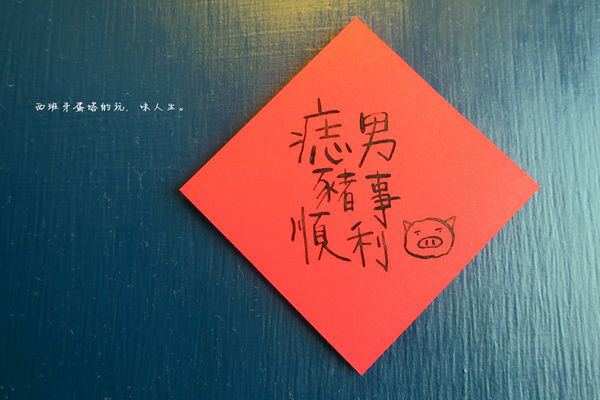 西班牙蛋塔的玩．味人生。
痣男
豬事
順利